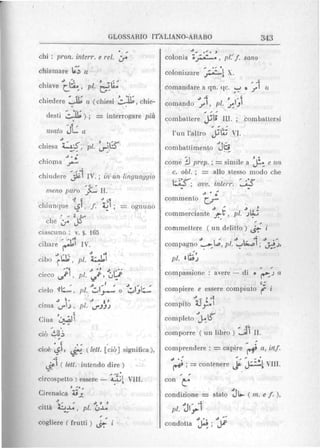 GLOSSARIO ITALIANO-ARABO 343
chi : pron. interr. e rel. مَنْ
chiamare نادى u
chiave مفتاح, pl. مفاتيح
chiedere طلب u (chiesi طلبت, chie-
desti طلبت) ; = interrogare più
usato سأل a
chiesa كنيسة, pl. كنائس
chioma شعر
chiudere أغلق IV. ; in un linguaggio
meno puro II.
chiunque أيّ, f. أيّة ; = ognuno
che كل من
ciascuno : v. § 165
cibare أطعم IV.
cibo طعام, pl. أطعمة
cieco أعمى, pl.
cielo سماء, pl. سموات o
cima pl.
Cina الصين
ciò ذلك
cioè أي, (lett. [ciò] significa),
أعني (lett. intendo dire)
circospetto : essere — VIII.
Cirenaica برقة
città مدينة, pl. مدن
cogliere (frutti) جنى i
colonia مستعمرة, pl. f. sano
colonizzare استعمر X.
comandare a qn. qc. أمر ه ب u
comando أمر, pl. أوامر
combattere قاتل III. ; combattersi
l'un l'altro تقاتل VI.
combattimento قتال
come ك prep. ; = simile a مثل e un
c. obl. ; = allo stesso modo che
كما ; avv. interr. كيف
commento شرح
commerciante تاجر, pl. تجار
commettere (un delitto) i
compagno صاحب, pl. أصحاب ; رفيق,
pl. رفقاء
compassione : avere — di رحم ه a
compiere e essere compiuto تم i
compito
completo كامل
comporre (un libro) ألّف II.
comprendere : = capire فهم a, inf.
فهم ; = contenere اشتمل على VIII.
con مع
condizione = stato حال (m. e f.),
pl. أحوال
condotta